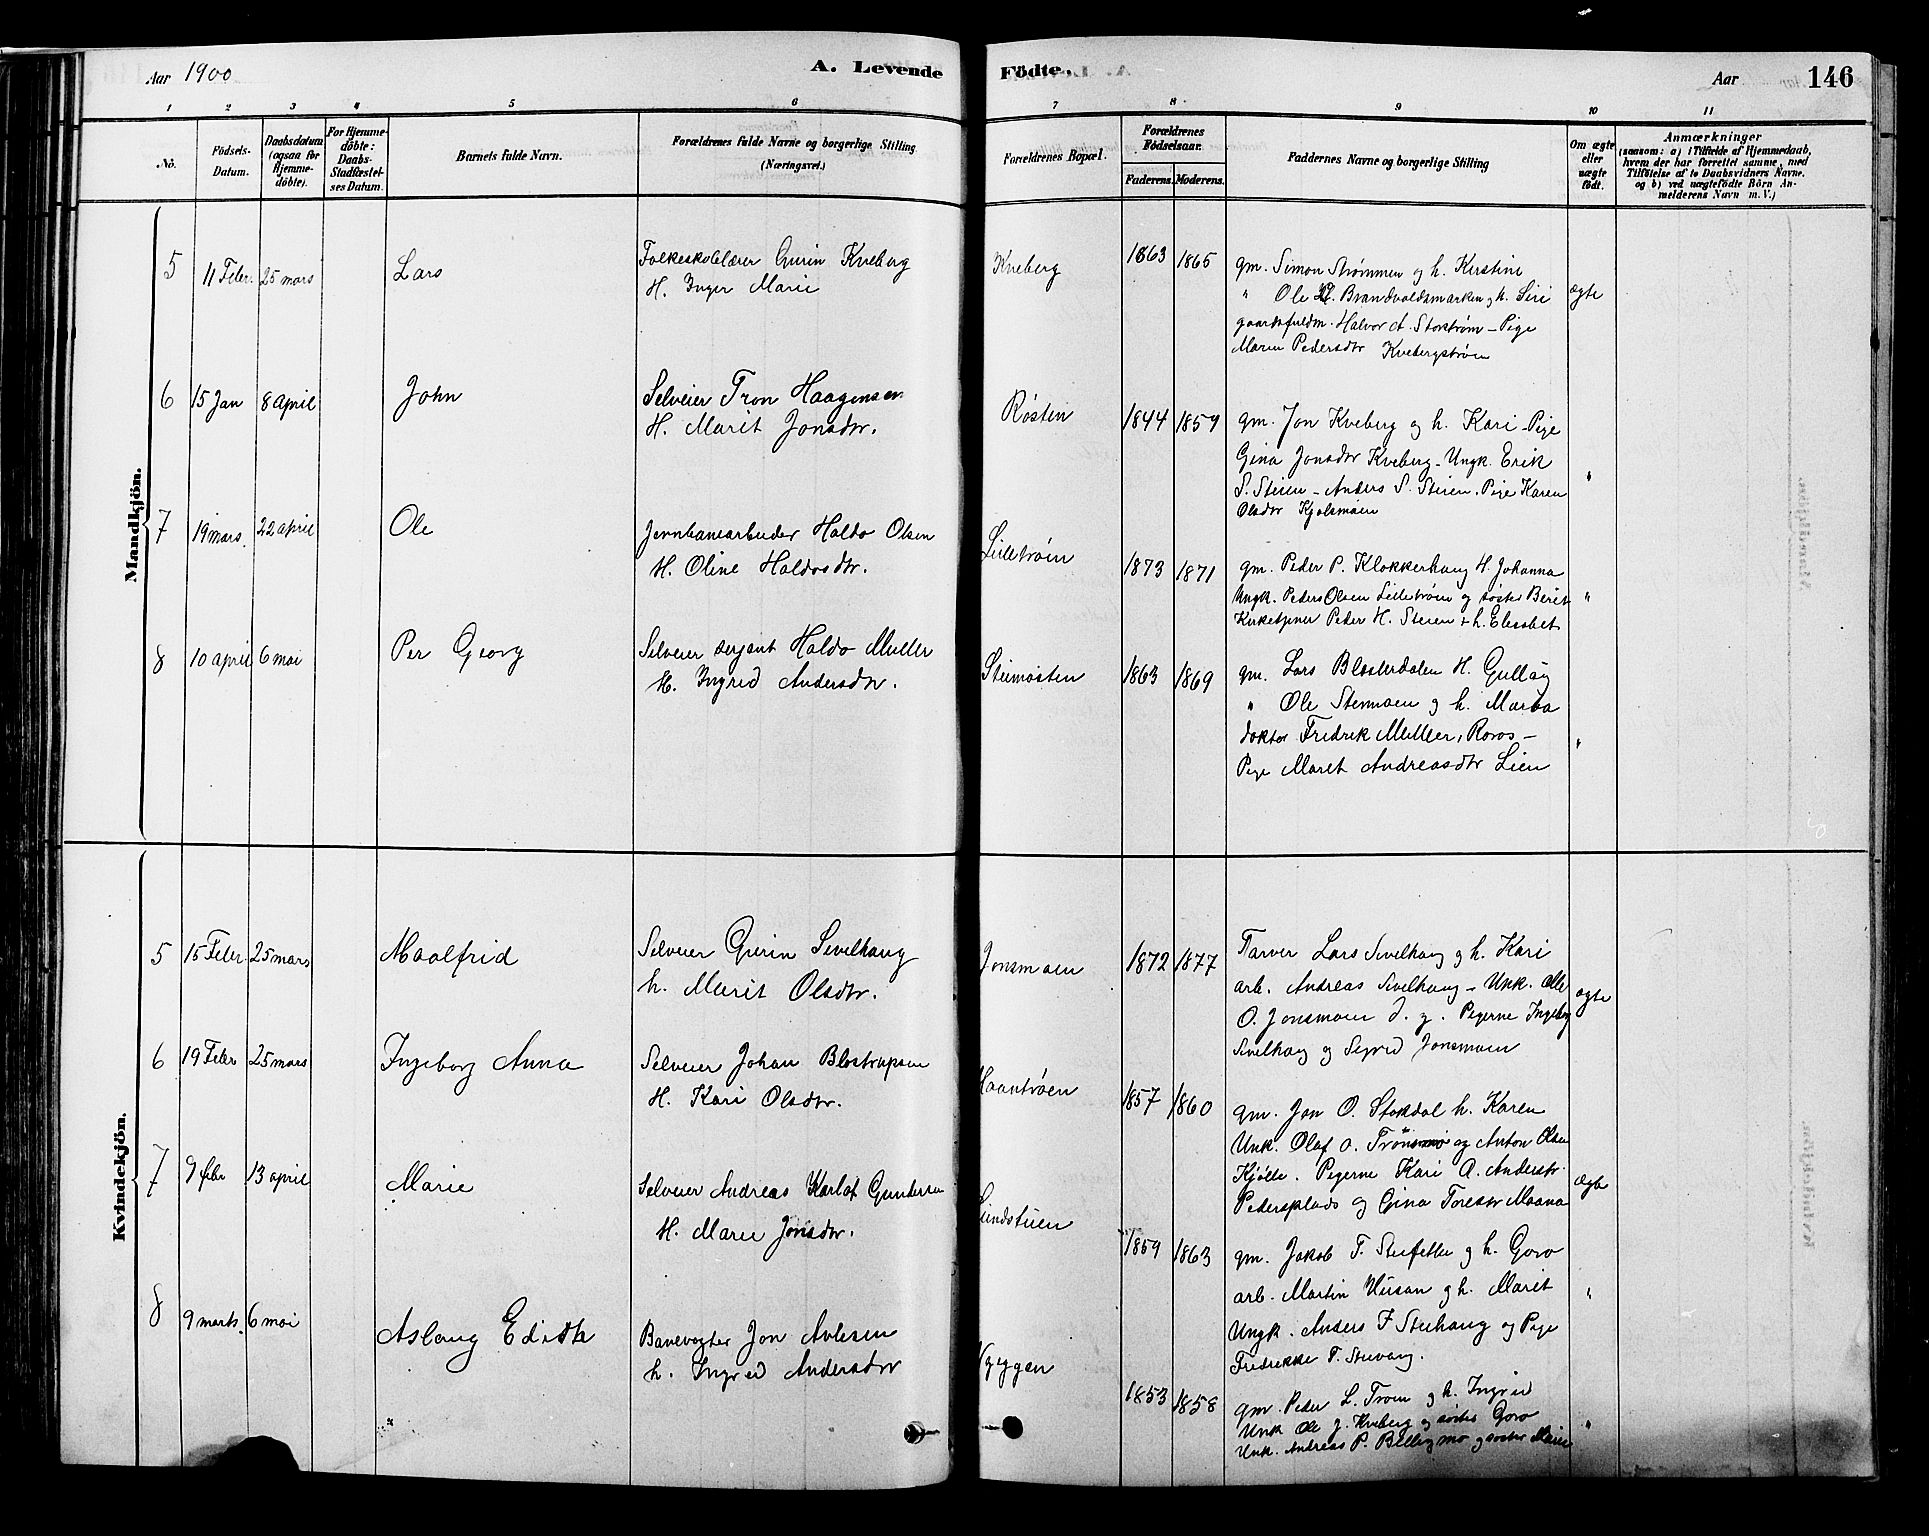 Aar 1900
A. Levende
Födte,
Aar
146
1 2 3 4 5 6 7 8 9 10 11
No.
Födsels-Datum.
Daabsdatum (ogsaa for Hjemme-döbte).
For Hjemme-döbte: Daabs-Stadfæstel-ses Datum.
Barnets fulde Navn.
Forældrenes fulde Navne og borgerlige Stilling (Næringsvei.)
Forældrenes Bopæl.
Forældrenes Födselsaar.
Faderens. Moderens.
Faddernes Navne og borgerlige Stilling
Om ægte eller uægte födt.
Anmærkninger
(saasom: a) i Tilfælde af Hjemmedaab,
hvem der har forrettet samme, med
Tilföielse af to Daabsvidners Navne.
og b) ved uægtefödte Börn An-
melderens Navn m. V.)
Mandkjön.
5 11 Febr. 25 mars Lars
Folkeskolelærer Gurin Kveberg
H. Inger Marie
Kveberg 1863 1865
gm. Simon Strømmen og h. Kirstine
" Ole Brandvoldsmarken og h. Siri
gaardsfuldm. Halvor A. Storstrøm - Pige
Maren Pedersdtr Kvebergstrøen
ægte
6 15 Jan 8 april John
Selveier Tron Haagensen
H. Marit Jonsdtr.
Røsten 1844 1859
gm. Jon Kveberg og h. Kari - Pige
Gina Jonsdtr Kveberg - Ungk. Erik
S. Steien - Anders S. Steien. Pige Karen
Olsdtr Kjølsmoen
"
7 19 mars. 22 april Ole
Jernbanearbeider Haldo Olsen
H. Oline Haldosdtr.
Lilletrøen 1873 1871
gm. Peder P. Klokkerhaug H. Johanna
Ungk. Peder Olsen Lilletrøen og søster Berit
Kirketjener Peder H. Steien + h. Elisabet
"
8 10 april 6 mai Per Georg
Selveier sergant Haldo Müller
H. Ingrid Andersdtr.
Steimosten 1863 1869
gm. Lars Blæsterdalen H. Gulløy
" Ole Steimoen og h. Marta
doktor Fredrik Müller, Røros -
Pige Marit Andreasdtr Lien
"
Kvindekjön.
5 15 Febr. 25 mars Maalfrid
Selveier Gurin Sivilhaug
h. Marit Olsdtr.
Jonsmoen 1872 1877
Farver Lars Sivilhaug og h. Kari
arb. Andreas Sivilhaug - Unk. Ole
O. Jonsmoen d. y. Pigerne Ingeborg
Sivilhaug og Sigrid Jonsmoen
ægte
6 19 Febr 25 mars Ingeborg Anna
Selveier Johan Blostrupsen
H. Kari Olsdtr.
Maantrøen 1857 1860
gm. Jon O. Stordal h. Karen
Unk. Olaf O. Trønsmo og Anton Olsen
Kjølle. Pigerne Kari A. Anderstr.
Pedersplads og Gina Toresdtr Maana
ægte
7 9 febr 13 april Marie
Selveier Andreas Karlof Gundersen
H. Marie Jonsdtr.
Lundstuen 1859 1863
gm. Jakob T. Steifetten og h. Goro
arb. Martin Nusan og h. Marit
Ungk. Anders F Steihaug og Pige
Fredrikke T. Steivang.
"
8 9 marts. 6 mai Aslaug Edith
Banevogter Jon Avlesen
h. Ingrid Andersdtr
Gyggen 1853 1858
gm. Peder L. Troen og h. Ingrid
Unk Ole J. Kveberg og søster Goro
Unk. Andreas P. Bellingmo og søster Marie
"